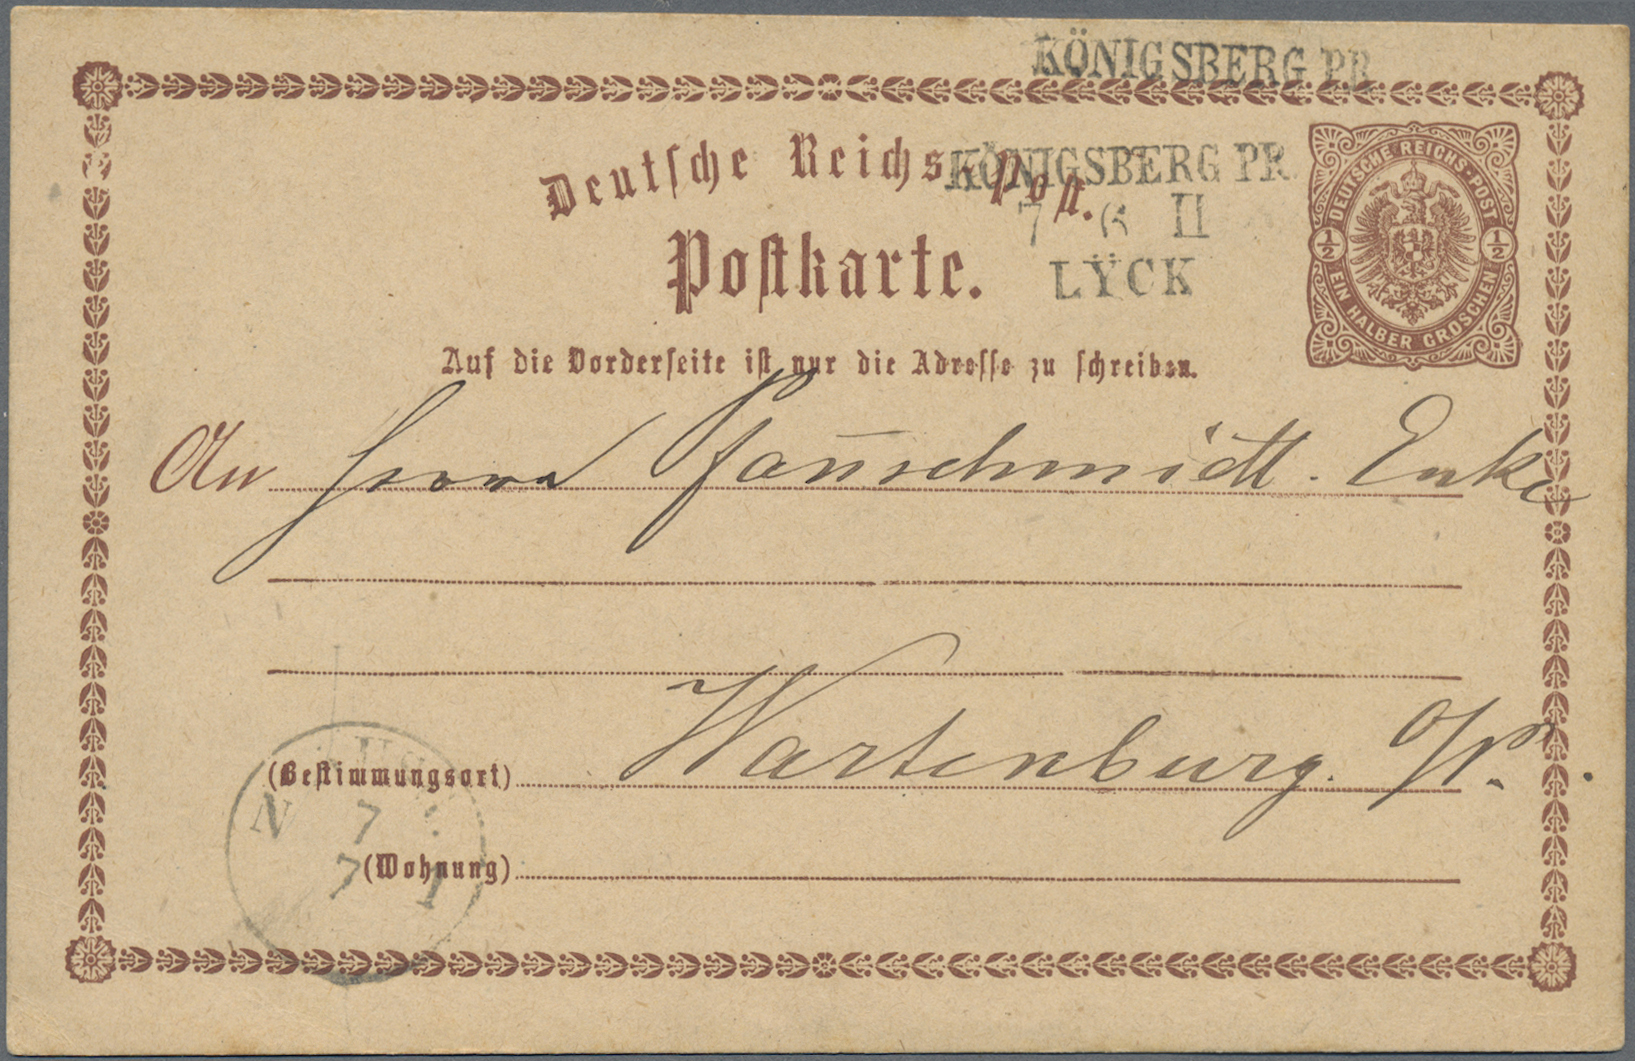 KÖNIGSBERG PR
Deutsche Reichs-Post.
KÖNIGSBERG PR.
7 6 II
LYCK
DEUTSCHE REICHS-POST
1/2 1/2
EIN HALBER GROSCHEN
Postkarte.
Auf die Vorderseite ist nur die Adresse zu schreiben.
An Herrn Pfannschmidt. Enke
Wartenburg. O/Pr.
(Bestimmungsort)
N 7
7 1
(Wohnung)